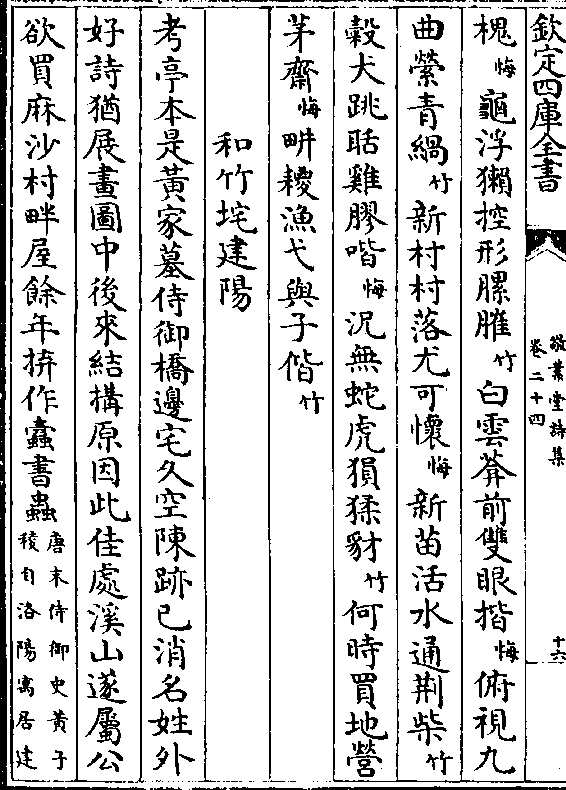 欽定四庫全書
敬業堂詩集
卷二十四
十六
槐悔龜浮獺控形腜脽竹白雲葊前雙眼揩悔俯視九
曲縈青緺竹新村村落尤可懷悔新苗活水通荆柴竹
縠犬跳聒雞膠喈悔況無蛇虎㹪猱豺竹何時買地營
茅齋悔畊耰漁弋與子偕竹
和竹垞建陽
考亭本是黃家墓侍御橋邊宅久空陳跡已消名姓外
好詩猶展畫圖中後來結構原因此佳處溪山遂屬公
欲買麻沙村畔屋餘年拚作蠹書蟲唐末侍御史黃子
稜自洛陽寓居建